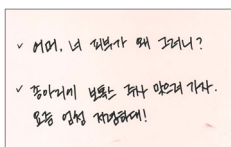 ✓ 어머, 너 피부가 왜 그러니?
✓ 종아리에 보톡스 주사 맞으러 가자.
요즘 엄청 저렴하대!